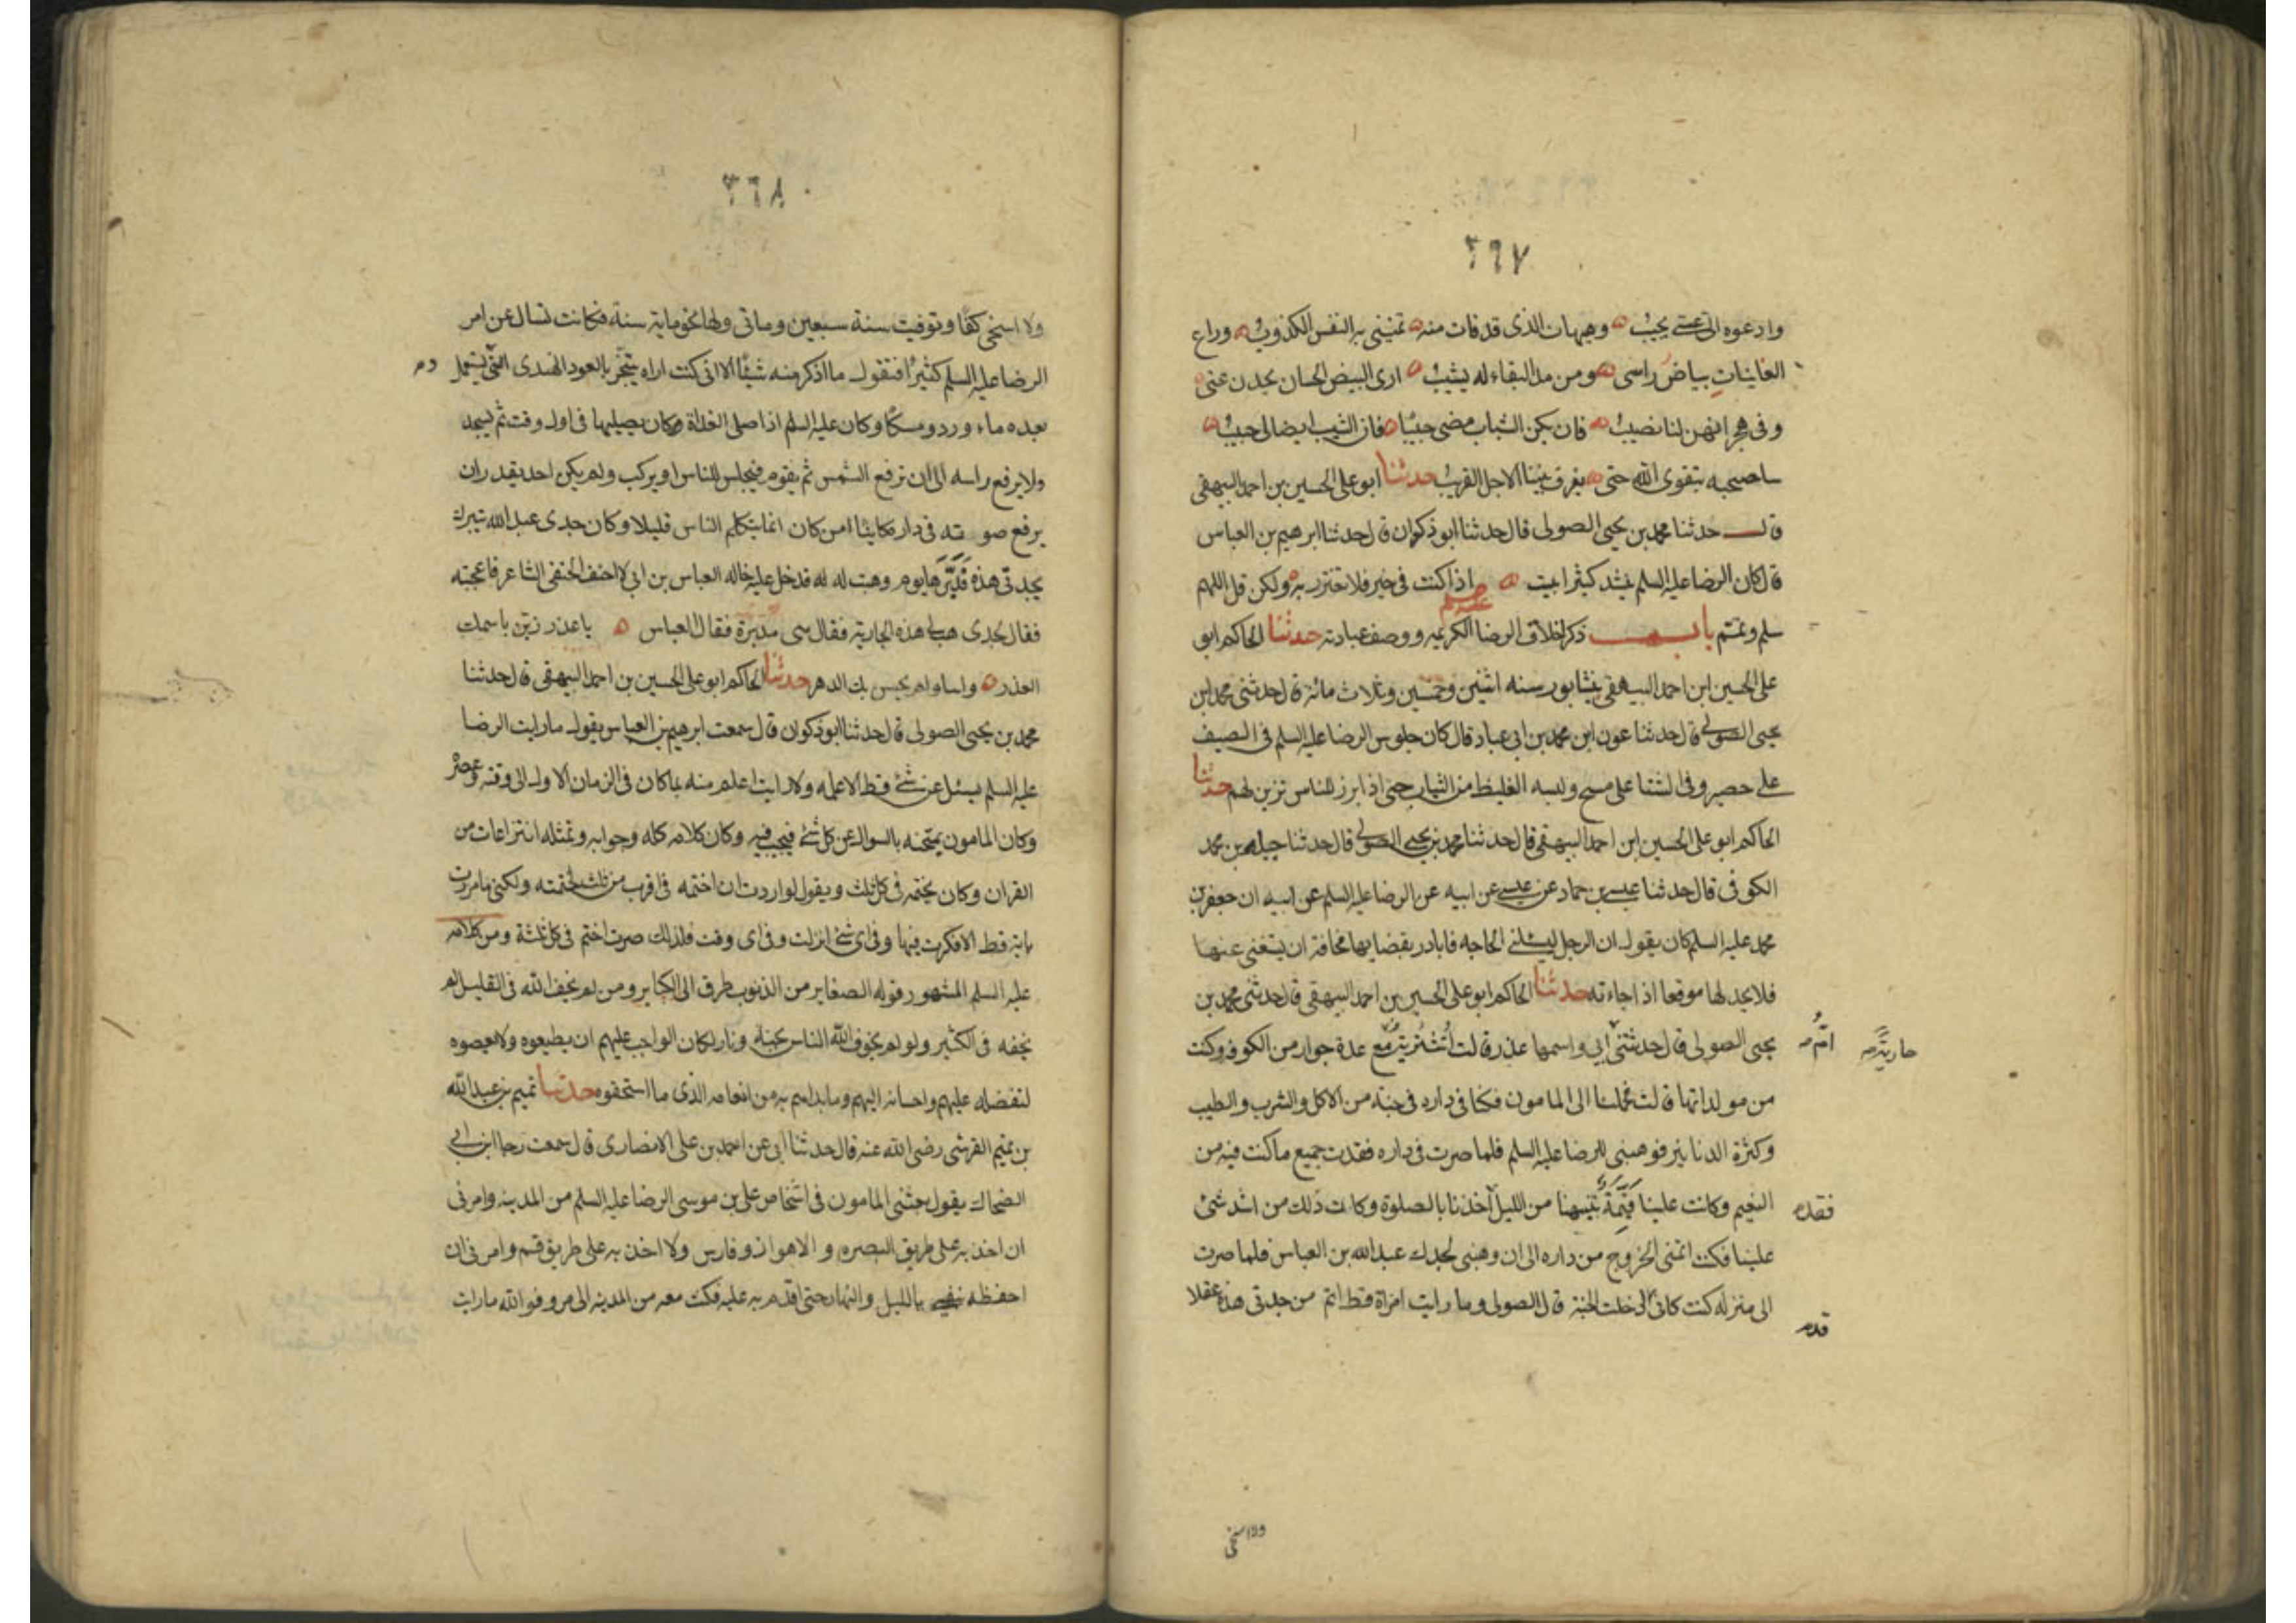 ٢٦٧
وادعوه الى عسى يجيب وهيهات الذى قد فات منه تمنينى به النفس الكذوب وراع
الغانيات بياض راسى ومن مد البقاء له يشيب ارى البيض الحسان يحدن عنى
وفى هجرانهن لنا نصيب فان يكن الشباب مضى حبيبا فان الشيب ايضا لى حبيب
ساصحبه بتقوى الله حتى يفرق بيننا الاجل القريب حدثنا ابو على الحسين بن احمد البيهقى
قال حدثنا محمد بن يحيى الصولى قال حدثنا ابو ذكوان قال حدثنا ابرهيم بن العباس
قال كان الرضا عليه السلم ينشد كثيرا بيت اذا كنت فى خير فلا تغترر به ولكن قل اللهم
سلم وتمم باب ذكر اخلاق الرضا الكريمه ووصف عبادته حدثنا الحاكم ابو
على الحسين ابن احمد البيهقى بنيشابور سنه اثنين وخمسين وثلاث مائة قال حدثنى محمد ابن
يحيى الصولى قال حدثنا عون ابن محمد بن ابى عباد قال كان جلوس الرضا عليه السلم فى الصيف
على حصير وفى الشتا على مسح ولبسه الغليظ من الثياب حتى اذا برز للناس تزين لهم حدثنا
الحاكم ابو على الحسين ابن احمد البيهقى قال حدثنا محمد بن يحيى الصولى قال حدثنا جبله بن محمد
الكوفى قال حدثنا عيسى بن حماد عن عيسى عن ابيه عن الرضا عليه السلم عن ابيه ان جعفر بن
محمد عليه السلم كان يقول ان الرجل ليسئلنى الحاجه فابادر بقضايها مخافة ان يستغنى عنها
فلا يجد لها موقعا اذا جاءته حدثنا الحاكم ابو على الحسين بن احمد البيهقى قال حدثنى محمد بن
يحيى الصولى قال حدثتنى ابى واسمها عذر قالت اشتريت مع عدة جوار من الكوفه وكنت
ام
جارية
من مولداتها قالت فحملنا الى المامون فكنا فى داره فى جنة من الاكل والشرب والطيب
وكثرة الدنانير فوهبنى للرضا عليه السلم فلما صرت فى داره فقدت جميع ما كنت فيه من
النعيم وكانت علينا قيمة تنبهنا من الليل اخذنا بالصلوة وكانت ذلك من اشد شئ
علينا فكنت اتمنى الخروج من داره الى ان وهبنى لجدك عبد الله بن العباس فلما صرت
الى منزله كنت كانى ادخلت الجنة قال الصولى وما رايت امراة قط اتم من جدتى هذه عقلا
ولا اسخى
٢٦٨
ولا اسخى كفا وتوفيت سنة سبعين وماتى ولها نحو ماية سنة فكانت تسال عن امر
الرضا عليه السلم كثيرا فتقول ما اذكر منه شيئا الا انى كنت اراه يتبخر بالعود الهندى التى يستعمل
بعده ماء ورد ومسكا وكان عليه السلم اذا صلى الغداة وكان يصليها فى اول وقت ثم يسجد
ولا يرفع راسه الى ان ترفع الشمس ثم يقوم فيجلس للناس او يركب ولم يكن احد يقدر ان
يرفع صوته فى داره كاينا من كان انما يتكلم الناس قليلا وكان جدى عبد الله تبرك
بجدتى هذه فدبرها يوم وهبت له فدخل عليه خاله العباس بن ابى لاحنف الحنفى الشاعر فاعجبته
فقال لجدى هب لى هذه الجارية فقال هى مدبرة فقال العباس يا عذر زين باسمك
العذر واساء ولم يحسن بك الدهر حدثنا الحاكم ابو على الحسين بن احمد البيهقى قال حدثنا
محمد بن يحيى الصولى قال حدثنا ابو ذكوان قال سمعت ابرهيم بن العباس يقول ما رايت الرضا
عليه السلم يسئل عن شئ قط الا علمه ولا رايت اعلم منه بما كان فى الزمان الاول الى وقته وعصره
وكان المامون يمتحنه بالسوال عن كل شئ فيجيب فيه وكان كلامه كله وجوابه وتمثله انتزاعات من
القران وكان يختمه فى كل ثلث ويقول لو اردت ان اختمه فى اقرب من ثلث لختمته ولكنى ما مررت
باية قط الا فكرت فيها وفى اى شئ انزلت وفى اى وقت فلذلك صرت اختم فى كل ثلثة ومن كلامه
عليه السلم المشهور قوله الصغاير من الذنوب طرق الى الكباير ومن لم يخف الله فى القليل لم
يخفه فى الكثير ولو لم يخوف الله الناس بجنة ونار لكان الواجب عليهم ان يطيعوه ولا يعصوه
لتفضله عليهم واحسانه اليهم وما بداهم به من انعامه الذى ما استحقوه حدثنا تميم بن عبد الله
بن تميم القرشى رضى الله عنه قال حدثنا ابى عن احمد بن على الانصارى قال سمعت رجا ابن ابى
الضحاك يقول بعثنى المامون فى اشخاص على بن موسى الرضا عليه السلم من المدينه وامرنى
ان اخذ به على طريق البصره والاهواز وفارس ولا اخذ به على طريق قم وامرنى ان
احفظه نفسى بالليل والنهار حتى اقدم به عليه فكنت معه من المدينه الى مرو فو الله ما رايت